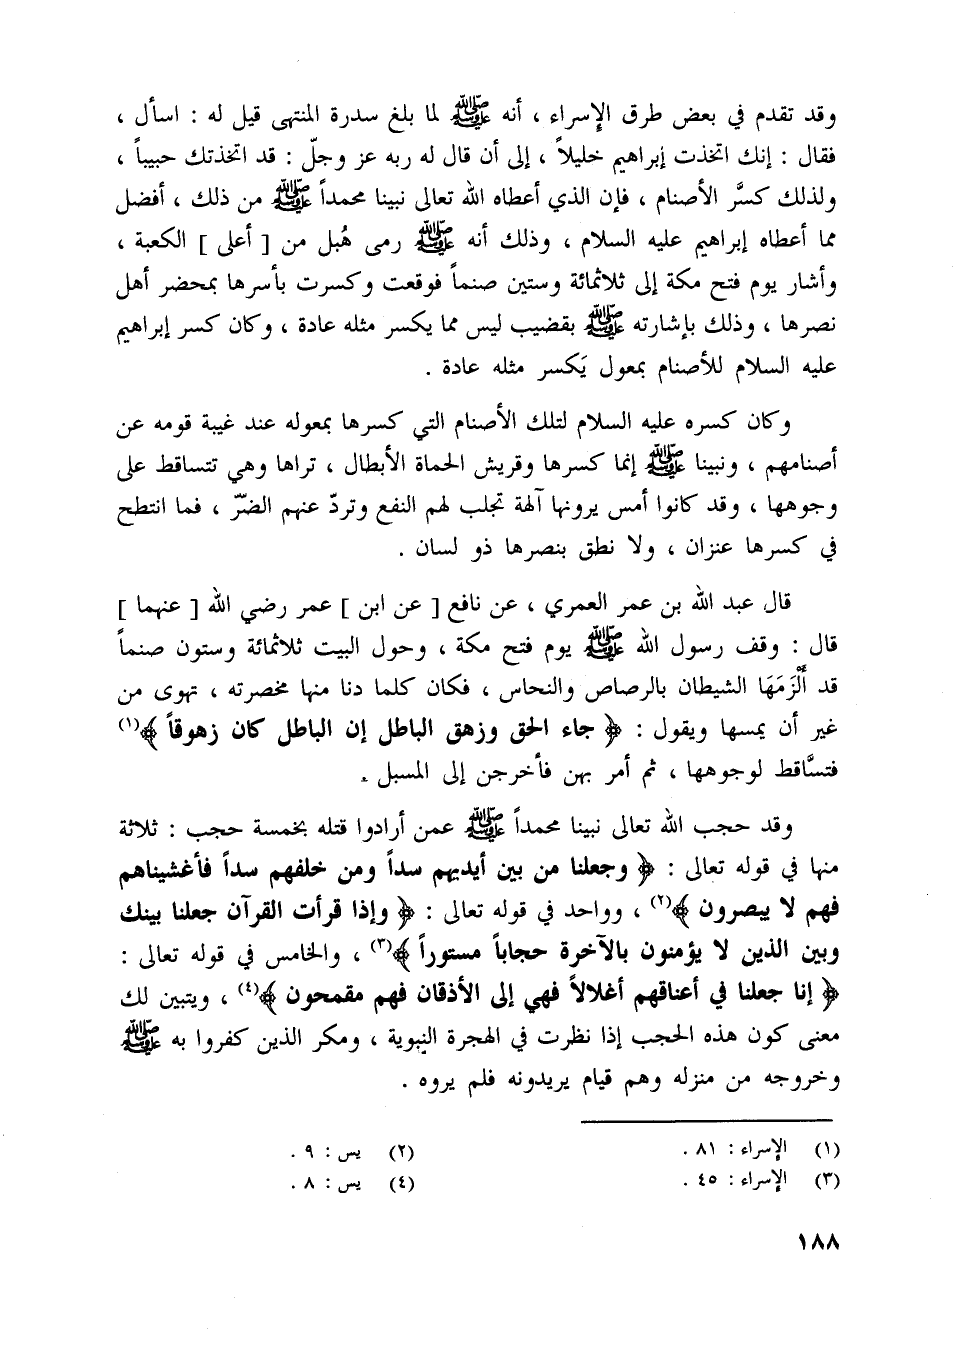 وقد تقدم في بعض طرق الإسراء ، أنه ﷺ لما بلغ سدرة المنتهى قيل له : اسأل ،
فقال : إنك اتخذت إبراهيم خليلاً ، إلى أن قال له ربه عز وجلّ : قد اتخذتك حبيباً ،
ولذلك كسَّر الأصنام ، فإن الذي أعطاه الله تعالى نبينا محمداً ﷺ من ذلك ، أفضل
مما أعطاه إبراهيم عليه السلام ، وذلك أنه ﷺ رمى هُبل من [ أعلى ] الكعبة ،
وأشار يوم فتح مكة إلى ثلاثمائة وستين صنماً فوقعت وكسرت بأسرها بمحضر أهل
نصرها ، وذلك بإشارته ﷺ بقضيب ليس مما يكسر مثله عادة ، وكان كسر إبراهيم
عليه السلام للأصنام بمعول يَكسر مثله عادة .
وكان كسره عليه السلام لتلك الأصنام التي كسرها بمعوله عند غيبة قومه عن
أصنامهم ، ونبينا ﷺ إنما كسرها وقريش الحماة الأبطال ، تراها وهي تتساقط على
وجوهها ، وقد كانوا أمس يرونها آلهة تجلب لهم النفع وتردّ عنهم الضرّ ، فما انتطح
في كسرها عنزان ، ولا نطق بنصرها ذو لسان .
قال عبد الله بن عمر العمري ، عن نافع [ عن ابن ] عمر رضي الله [ عنهما ]
قال : وقف رسول الله ﷺ يوم فتح مكة ، وحول البيت ثلاثمائة وستون صنماً
قد أَلْزَمَهَا الشيطان بالرصاص والنحاس ، فكان كلما دنا منها مخصرته ، تهوى من
غير أن يمسها ويقول : ﴿ جاء الحق وزهق الباطل إن الباطل كان زهوقاً ﴾(١)
فتسَّاقط لوجوهها ، ثم أمر بهن فأخرجن إلى المسيل .
وقد حجب الله تعالى نبينا محمداً ﷺ عمن أرادوا قتله بخمسة حجب : ثلاثة
منها في قوله تعالى : ﴿ وجعلنا من بين أيديهم سداً ومن خلفهم سداً فأغشيناهم
فهم لا يبصرون ﴾(٢) ، وواحد في قوله تعالى : ﴿ وإذا قرأت القرآن جعلنا بينك
وبين الذين لا يؤمنون بالآخرة حجاباً مستوراً ﴾(٣) ، والخامس في قوله تعالى :
﴿ إنا جعلنا في أعناقهم أغلالاً فهي إلى الأذقان فهم مقمحون ﴾(٤) ، ويتبين لك
معنى كون هذه الحجب إذا نظرت في الهجرة النبوية ، ومكر الذين كفروا به ﷺ
وخروجه من منزله وهم قيام يريدونه فلم يروه .
(١) الإسراء : ٨١ .
(٢) يس : ٩ .
(٣) الإسراء : ٤٥ .
(٤) يس : ٨ .
١٨٨